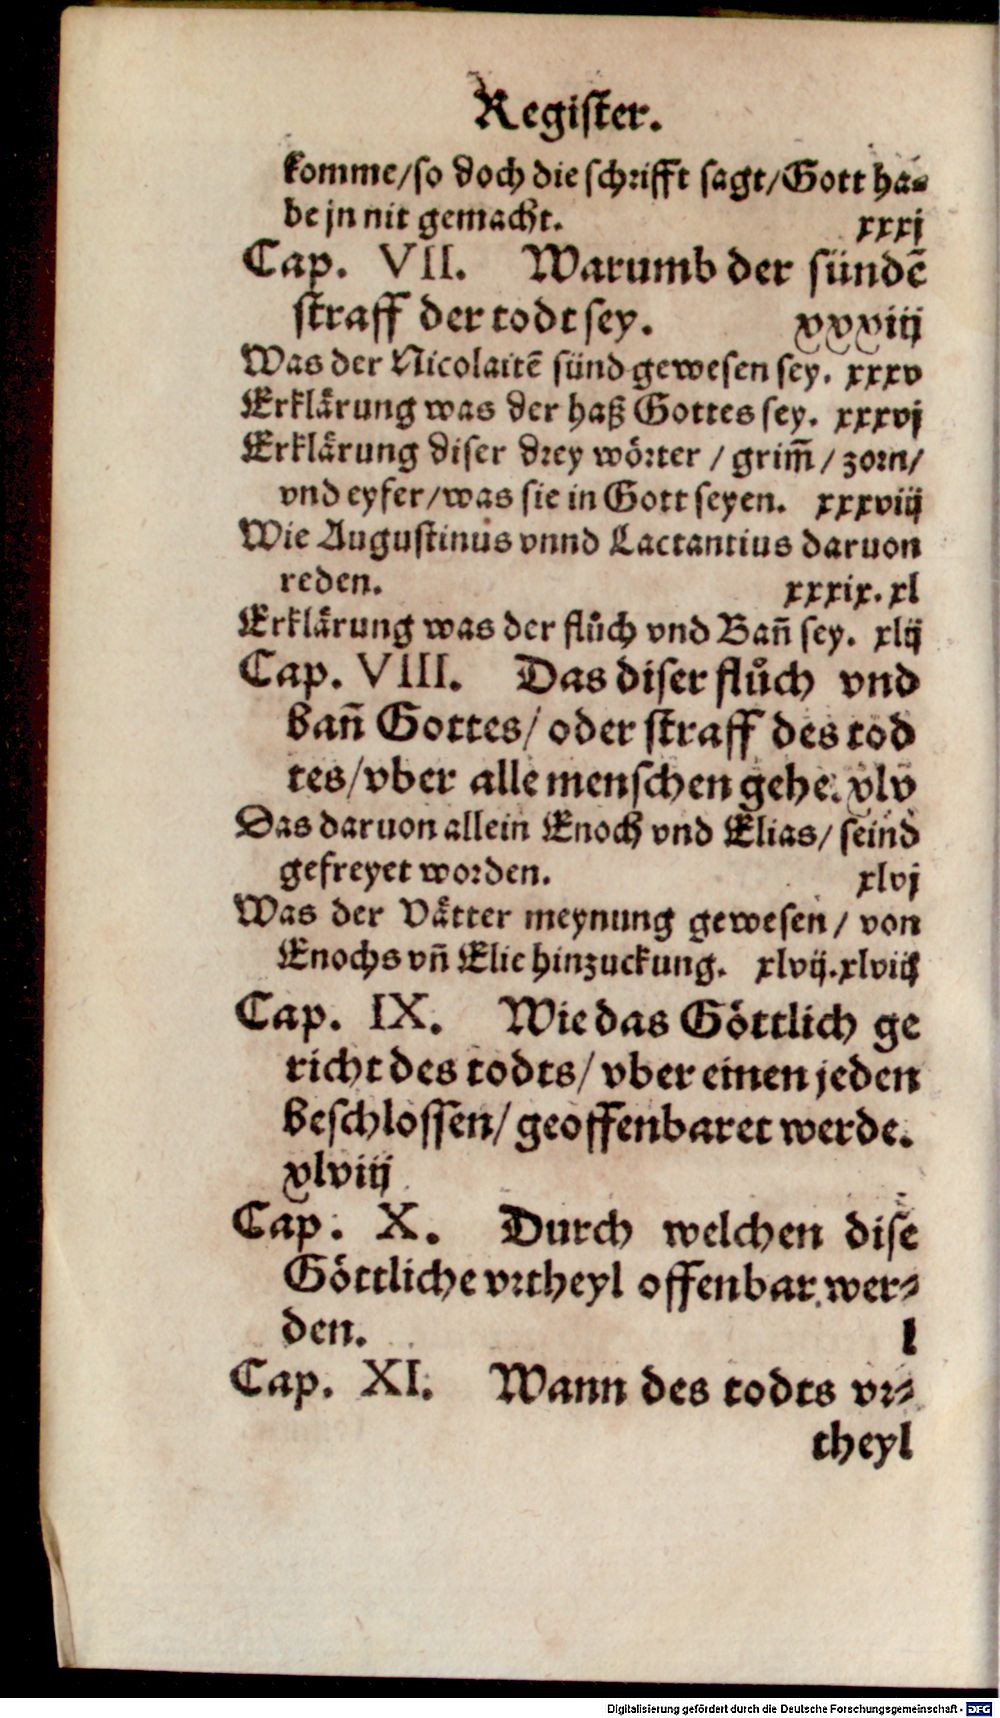 Regiſter.
komme/ſo doch die ſchꝛifft ſagt/Gott ha⸗
be jn nit gemacht. xxxj
Cap. VII. Warumb der ſündē
ſtraff der todt ſey. xxxiij
Was der Nicolaitē ſünd geweſen ſey. xxxv
Erklärung was der haß Gottes ſey. xxxvj
Erklärung diſer dꝛey wöꝛter / grim̃ / zoꝛn/
vnd eyfer/was ſie in Gott ſeyen. xxxviij
Wie Auguſtinus vnnd Lactantius daruon
reden. xxxix. xl
Erklärung was der flůch vnd Bañ ſey. xlij
Cap. VIII. Das diſer flůch vnd
bañ Gottes/ oder ſtraff des tod
tes/vber alle menſchen gehe. xlv
Das daruon allein Enoch vnd Elias/ ſeind
gefreyet woꝛden. xlvj
Was der Vätter meynung geweſen / von
Enochs vñ Elie hinzuckung. xlvij.xlviij
Cap. IX. Wie das Göttlich ge
richt des todts/ vber einen jeden
beſchloſſen/ geoffenbaret werde.
xlviij
Cap. X. Durch welchen diſe
Göttliche vꝛtheyl offenbar wer⸗
den. l
Cap. XI. Wann des todts vꝛ⸗
theyl
Digitalisierung gefördert durch die Deutsche Forschungsgemeinschaft - DFG